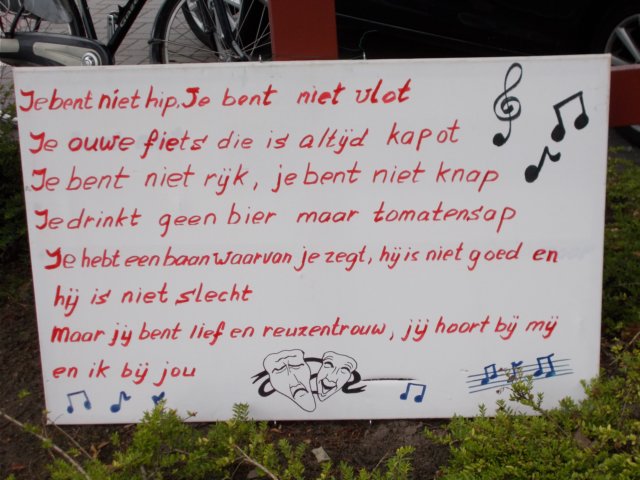 Je bent niet hip. Je bent niet vlot
Je ouwe fiets die is altijd kapot
Je bent niet rijk, je bent niet knap
Je drinkt geen bier maar tomatensap
Je hebt een baan waarvan je zegt, hij is niet goed en
hij is niet slecht
Maar jij bent lief en reuzentrouw, jij hoort bij mij
en ik bij jou